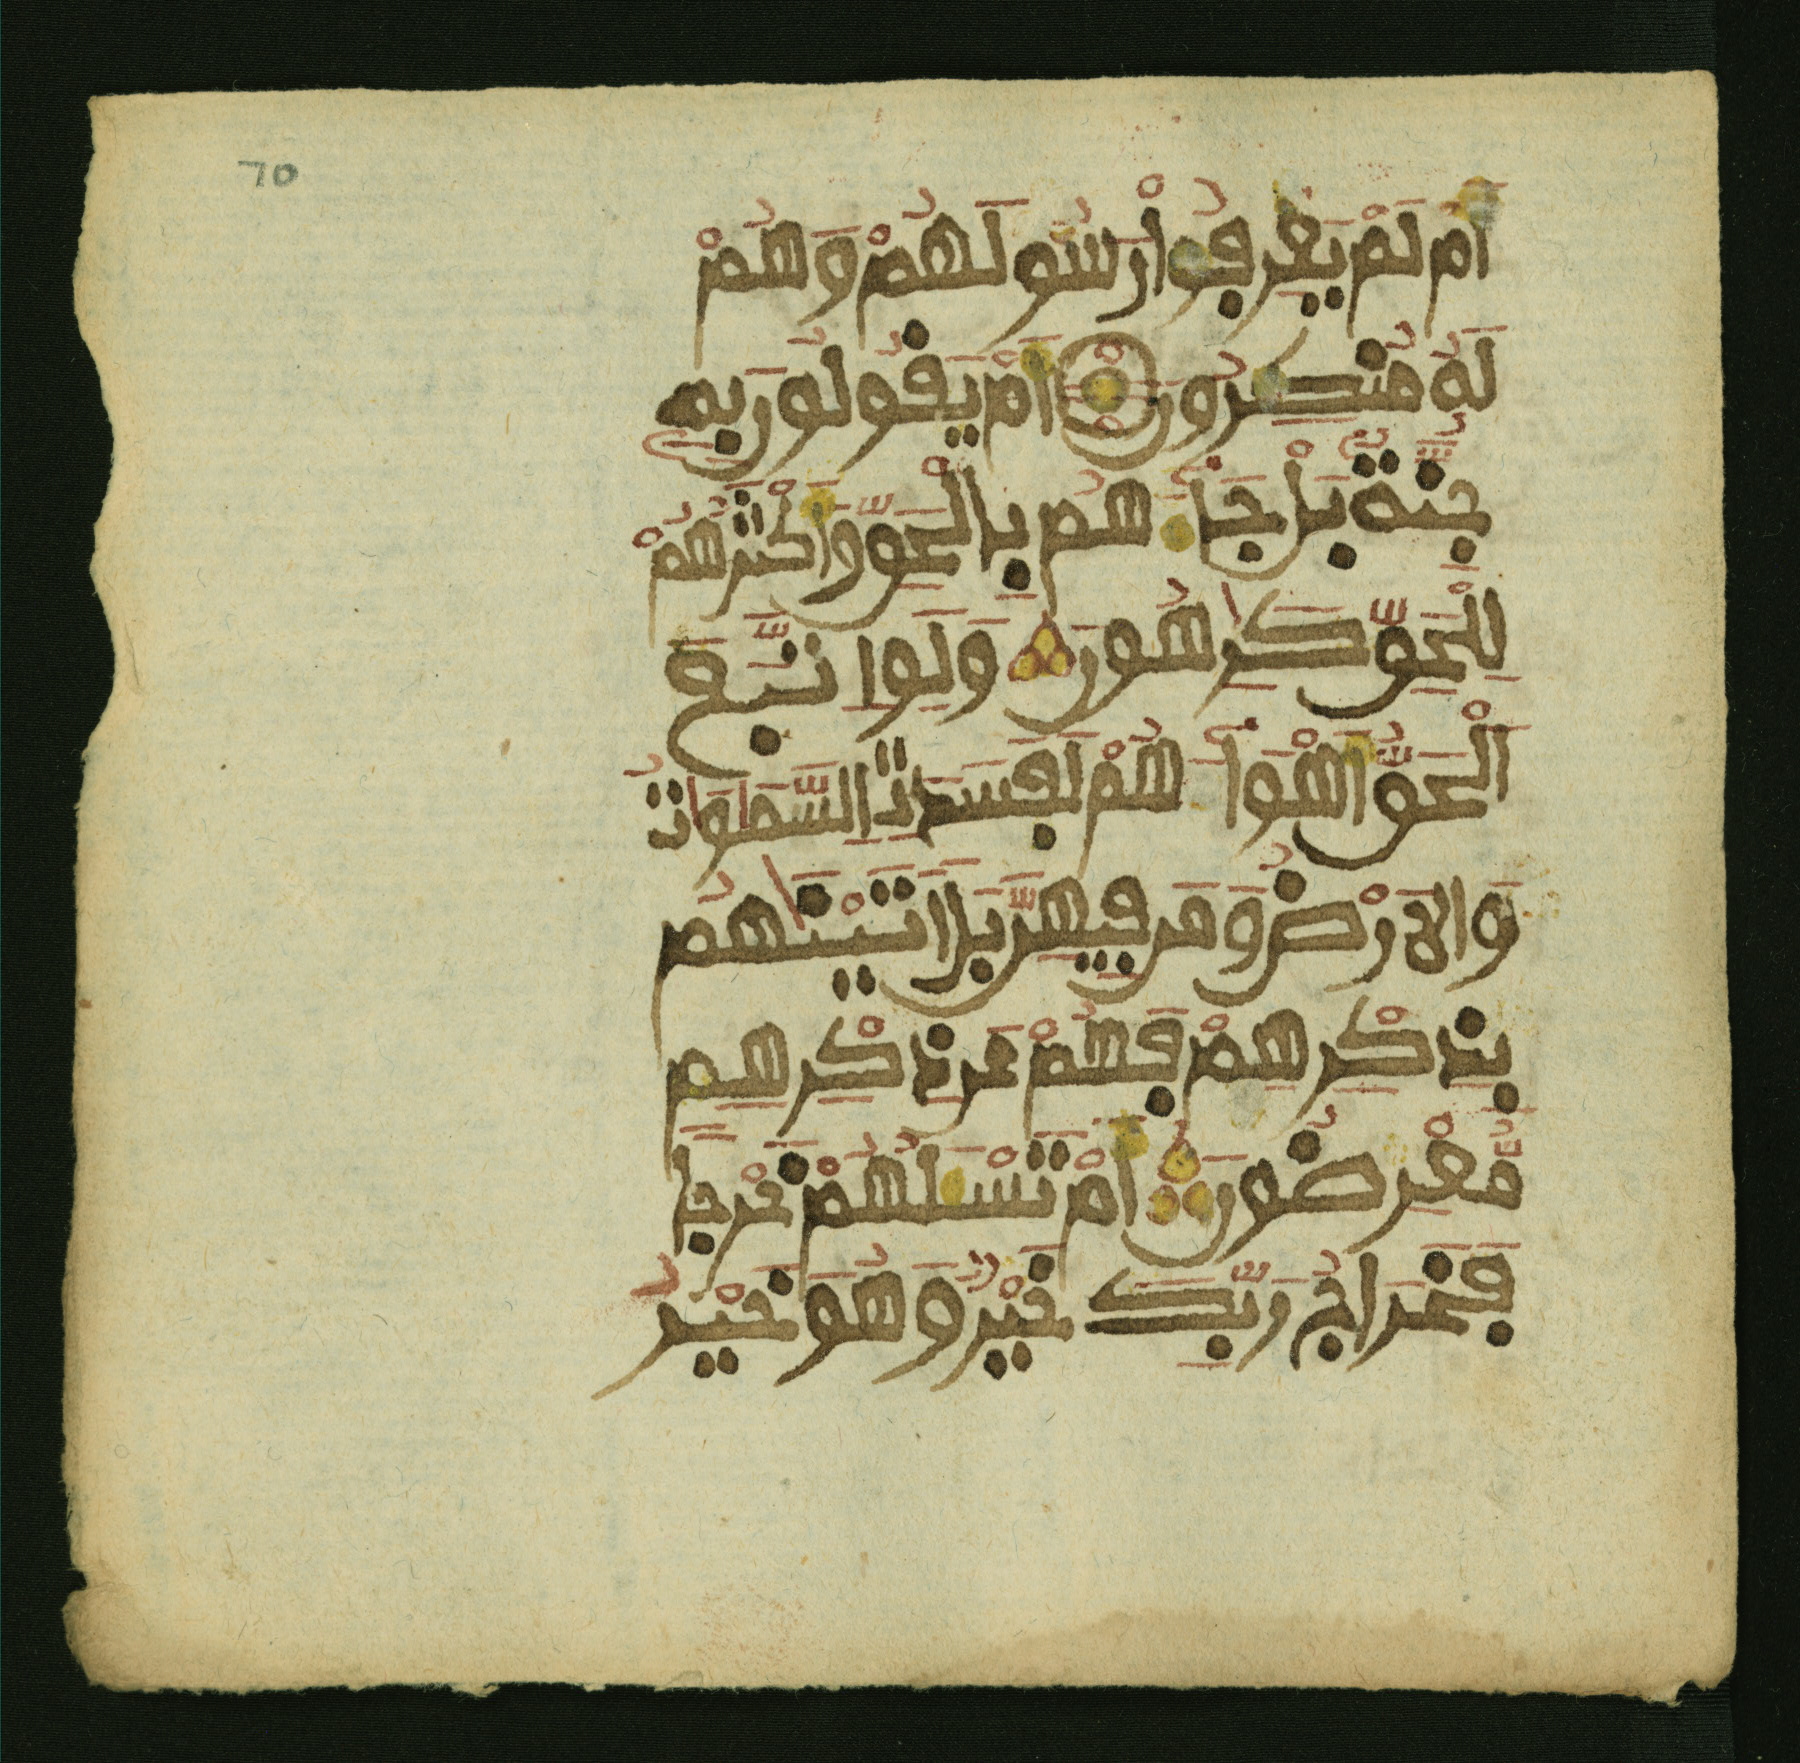 70
أَمْ لَمْ يَعْرِفُواْ رَسُولَهُمْ وَهُمْ
لَهُ مُنكِرُونَ أَمْ يَقُولُونَ بِهِ
جِنَّةٌ بَلْ جَآءَهُم بِالْحَقِّ وَأَكْثَرُهُمْ
لِلْحَقِّ كَٰرِهُونَ وَلَوِ اتَّبَعَ
الْحَقُّ أَهْوَآءَهُمْ لَفَسَدَتِ السَّمَٰوَٰتُ
وَالَارْضُ وَمَن فِيهِنَّ بَلَ اَتَيْنَٰهُم
بِذِكْرِهِمْ فَهُمْ عَن ذِكْرِهِم
مُّعْرِضُونَ أَمْ تَسْـَٔلُهُمْ خَرْجاً
فَخَرَاجُ رَبِّكَ خَيْرٌ وَهُوَ خَيْرُ